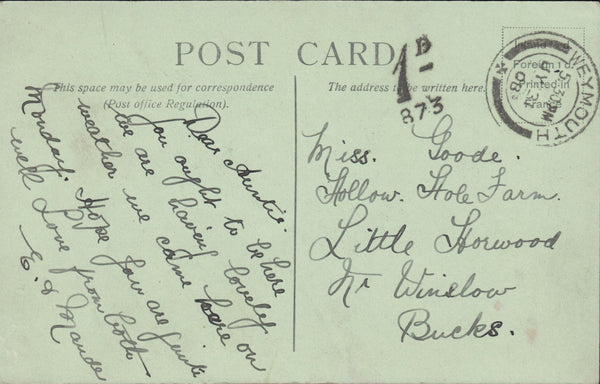 POST CARD
This space may be used for correspondence
(Post office Regulation).
The address to be written here.
1D
873
Foreign 1d.
Printed in
France
WEYMOUTH
5.30PM
JY 31
08
Dear Auntie.
You ought to be here
We are having lovely
weather we came here on
Monday. Hope you are quite
well Love from both
E. & Maude
Miss. Goode.
Hollow. Hole Farm.
Little Horwood
Nr Winslow
Bucks.